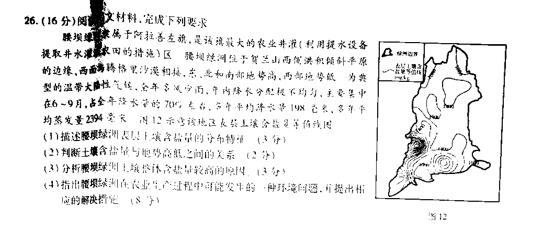 26.(16分)阅读图文材料,完成下列要求
腰坝绿洲隶属于阿拉善左旗,是该旗最大的农业井灌(利用提水设备
提取井水灌溉农田的措施)区 腰坝绿洲位于贺兰山西侧洪积倾斜平原
的边缘,西面与腾格里沙漠相接,东、北和南部地势高,西部地势低 为典
型的温带大陆性气候,全年多风少雨,年内降水分配极不均匀,主要集中
在6~9月,占全年降水量的70%左右,多年平均降水量198毫米,多年平
均蒸发量2394毫米 图12示意该地区表层土壤含盐量等值线图
(1)描述腰坝绿洲表层土壤含盐量的分布特征 (3分)
(2)判断土壤含盐量与地势高低之间的关系 (2分)
(3)分析腰坝绿洲土壤整体含盐量较高的原因 (3分)
(4)指出腰坝绿洲在农业生产过程中可能发生的一种环境问题,并提出相
应的解决措施 (8分)
绿洲边界
表层土壤含
盐量等值线
图12